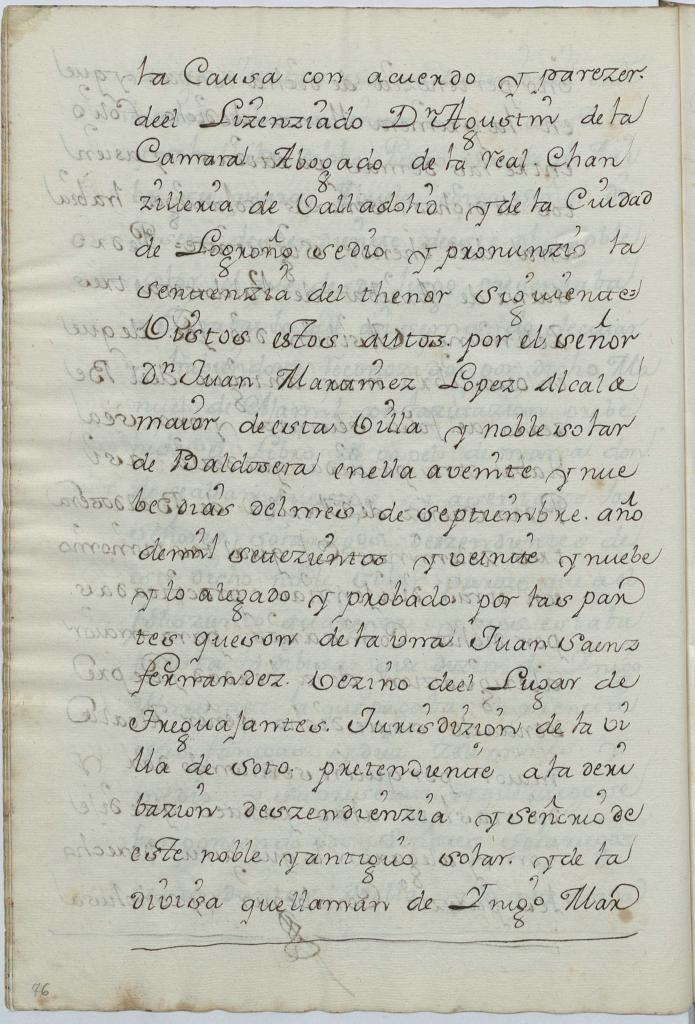 la Causa con acuerdo y parezer.
deel Lizenziado Dn Agustin de la
Camara Abogado de la real. Chan
zilleria de Valladolid y de la Ciudad
de Logroño sedio y pronunzio la
sentenzia del thenor siguiente=
Vistos estos autos. por el señor
Dn Juan Martinez Lopez Alcalde
maior de esta Villa y noble solar
de Baldosera enella a veinte y nue
be dias del mes de septiembre. año
de mil setezientos y veinte y nuebe
y lo alegado y probado por las par
tes que son de la una Juan Saenz
fernandez. Vezino deel Lugar de
Treguajantes. Jurisdizion de la vi
lla de Soto. pretendiente a la deri
bazion deszendienzia y señorio de
este noble y antiguo solar. y de la
divisa que llaman de Ynigo Mar
76